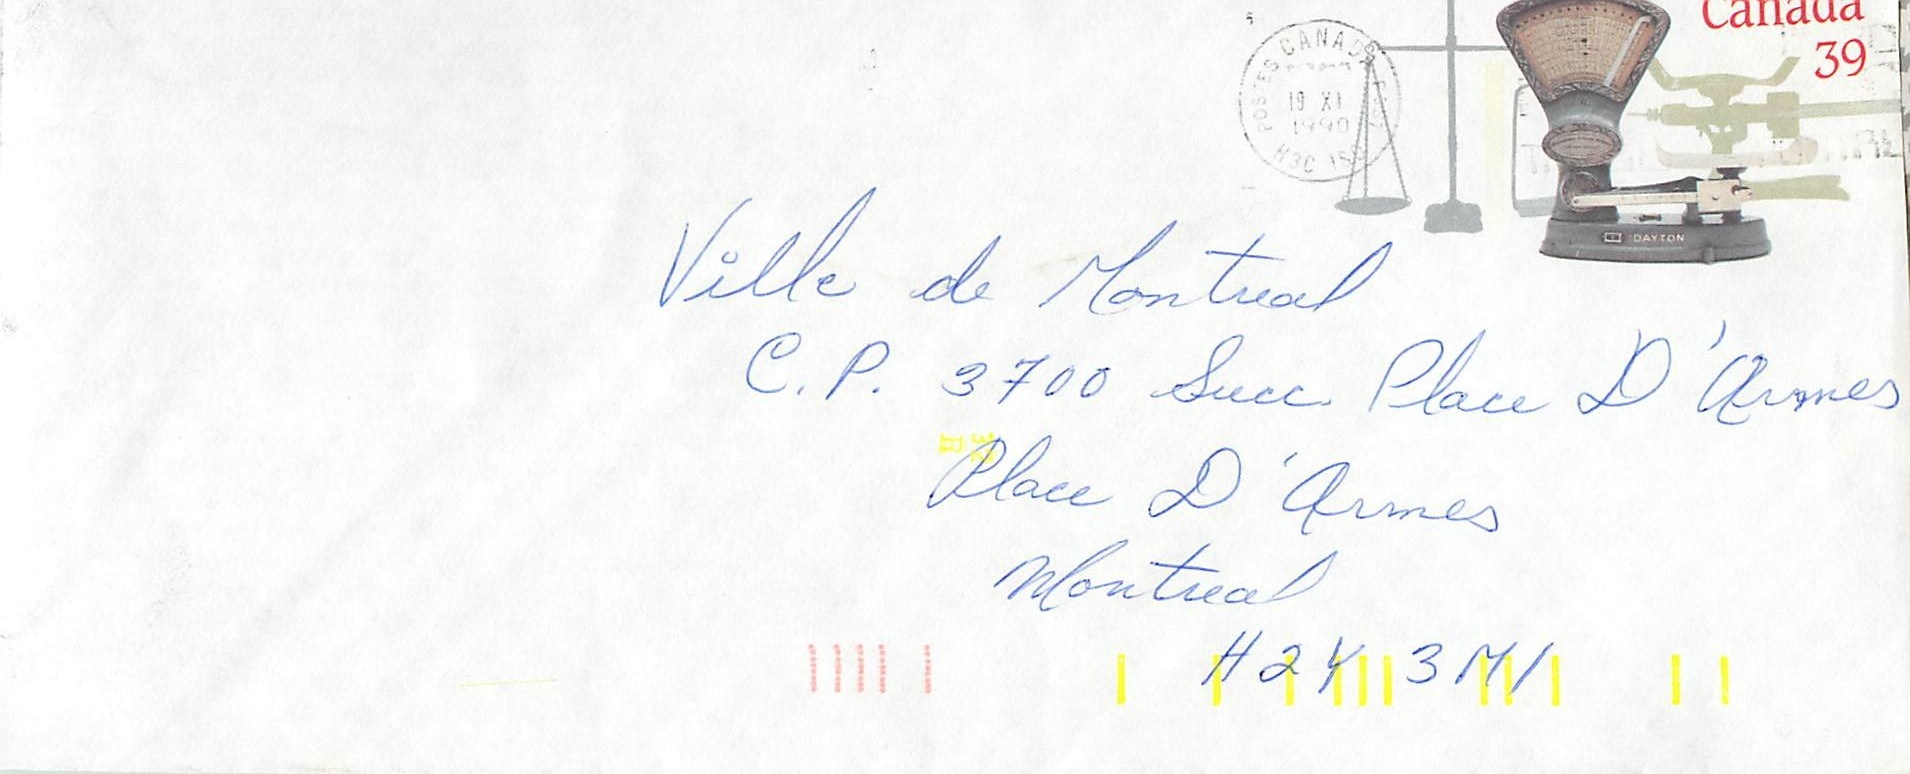 Canada
39
POSTES CANADA POST
19 XI
1990
H3C 1S0
DAYTON
Ville de Montreal
C.P. 3700 Succ. Place D'Armes
32
Place D'Armes
Montreal
H2Y 3M1